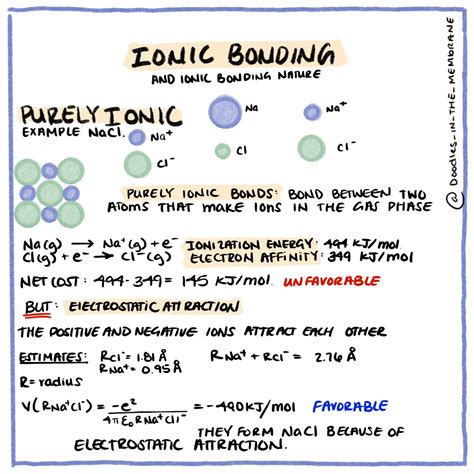 IONIC BONDING
AND IONIC BONDING NATURE
@DOODLES_IN_THE_MEMBRANE
PURELY IONIC
EXAMPLE NaCl.
Na⁺
Cl⁻
Na
Na⁺
Cl
Cl⁻
PURELY IONIC BONDS: BOND BETWEEN TWO
ATOMS THAT MAKE IONS IN THE GAS PHASE
Na(g) → Na⁺(g) + e⁻ IONIZATION ENERGY: 494 KJ/mol
Cl(g) + e⁻ → Cl⁻(g) ELECTRON AFFINITY: 349 KJ/mol
NET COST: 494-349 = 145 KJ/mol. UNFAVORABLE
BUT: ELECTROSTATIC ATTRACTION
THE POSITIVE AND NEGATIVE IONS ATTRACT EACH OTHER
ESTIMATES: RCl⁻ = 1.81 Å RNa⁺ + RCl⁻ = 2.76 Å
RNa⁺ = 0.95 Å
R = radius
V(RNa⁺Cl⁻) = -e² / 4πε₀RNa⁺Cl⁻ = -490KJ/mol FAVORABLE
THEY FORM NaCl BECAUSE OF
ELECTROSTATIC ATTRACTION.